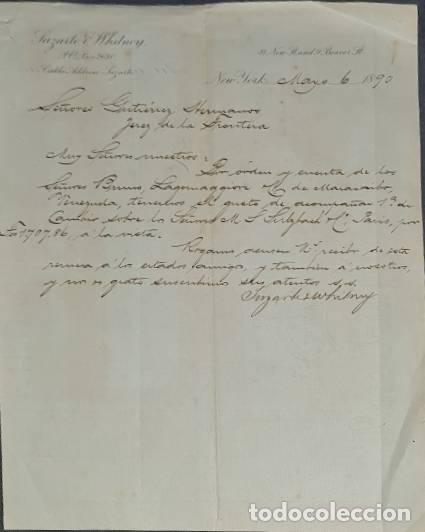 Lazarte & Whitney,
P.O. Box 2630
Cable Address
New St. and 9 Beaver St.
New York, Mayo 6 1890
Señores Gutiérrez Hermanos
Jerez de la Frontera
Muy Señores nuestros:
Por órden y cuenta de los
Señores Bruno, Lagomaggiore & Co de Maracaibo,
Venezuela, tenemos el gusto de acompañar 1ª de
Cambio sobre los Señores M. S. & Co, Paris, por
Fcs 1707,86, á la vista.
Rogamos acusen recibo de esta
remesa á los citados amigos, y tambien á nosotros,
y nos es grato suscribirnos sus atentos s.s.
Lazarte & Whitney
todocoleccion.net